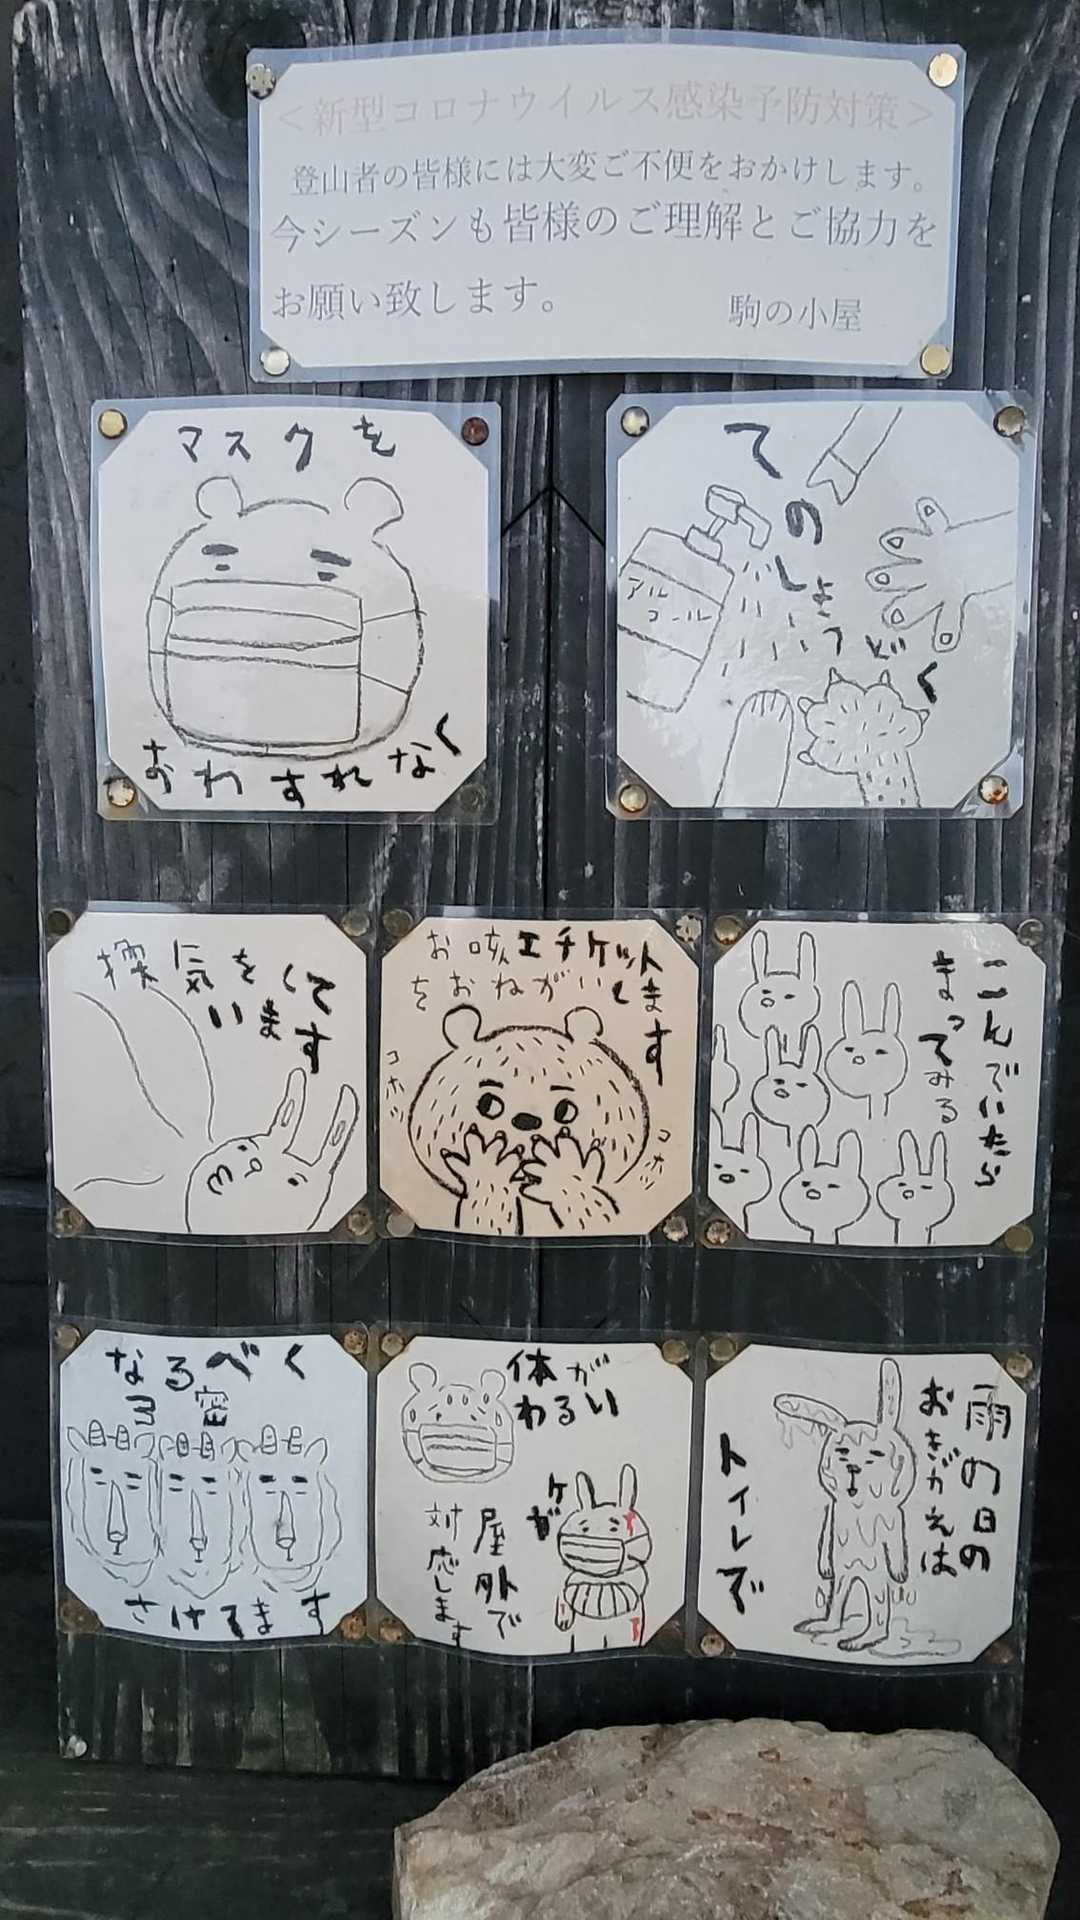 ＜新型コロナウイルス感染予防対策＞
登山者の皆様には大変ご不便をおかけします。
今シーズンも皆様のご理解とご協力を
お願い致します。
駒の小屋
マスクを
おわすれなく
てのしょうどく
アル
コール
換気を
して
います
お咳エチケット
をおねがいします
コホッ
コホッ
こんでいたら
まってみる
なるべく
3密
さけてます
体が
わるい
ケガ
屋外で
対応します
雨の日の
おきがえは
トイレで